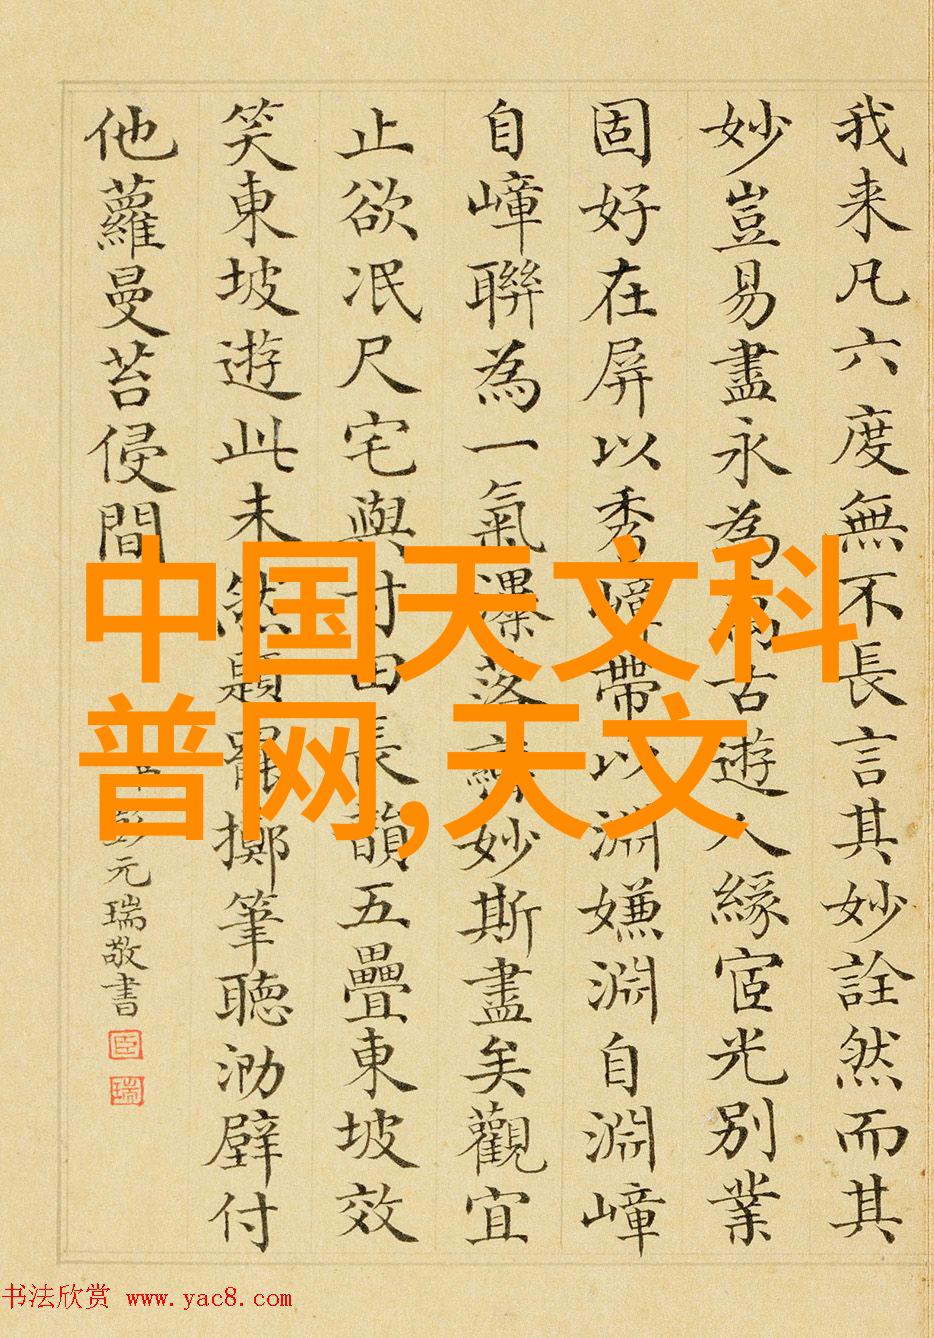 我来凡六度無不長言其妙詮然而其
妙豈易盡永為萬古遊人緣宧光別業
固好在屏以秀嶂帶以淵嫌淵自淵嶂
自嶂聯為一氣瀑落妙斯盡矣觀宜
止欲泯尺宅與寸田長韻五疊東坡效
笑東坡遊此未然題罷擲筆聽泐壁付
他蘿曼苔侵間
彭元瑞敬書
臣
瑞
中国天文科
普网,天文
书法欣赏 www.yac8.com